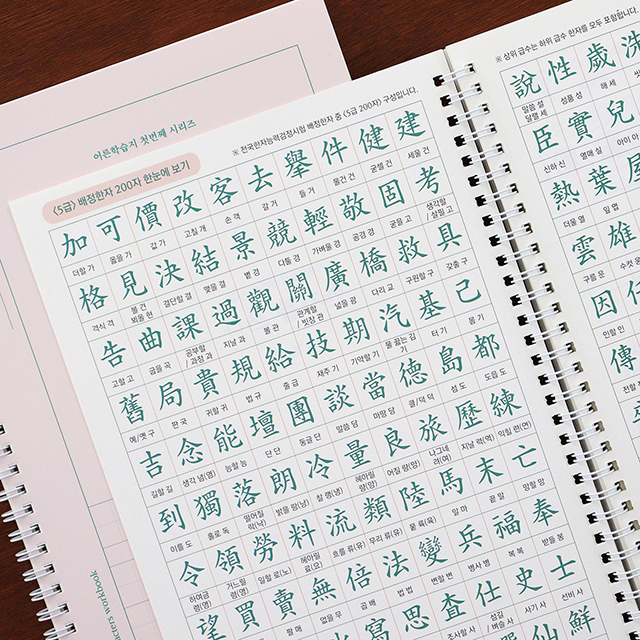 어른학습지 첫번째 시리즈
<5급> 배정한자 200자 한눈에 보기
※ 전국한자능력검정시험 배정한자 중 <5급 200자> 구성입니다.
加 可 價 改 客 去 擧 件 健 建
더할 가 옳을 가 값 가 고칠 개 손 객 갈 거 들 거 물건 건 굳셀 건 세울 건
格 見 決 結 景 競 輕 敬 固 考
격식 격 볼 견 뵈올 현 결단할 결 맺을 결 볕 경 다툴 경 가벼울 경 공경 경 굳을 고 생각할/살필 고
告 曲 課 過 觀 關 廣 橋 救 具
고할 고 굽을 곡 공부할/과정 과 지날 과 볼 관 관계할/빗장 관 넓을 광 다리 교 구원할 구 갖출 구
舊 局 貴 規 給 技 期 汽 基 己
예/옛 구 판 국 귀할 귀 법 규 줄 급 재주 기 기약할 기 물 끓는 김 기 터 기 몸 기
吉 念 能 壇 團 談 當 德 島 都
길할 길 생각 념(염) 능할 능 단 단 둥글 단 말씀 담 마땅 당 클/덕 덕 섬 도 도읍 도
到 獨 落 朗 冷 量 良 旅 歷 練
이를 도 홀로 독 떨어질 락(낙) 밝을 랑(낭) 찰 랭(냉) 헤아릴 량(양) 어질 량(양) 나그네 려(여) 지날 력(역) 익힐 련(연)
令 領 勞 料 流 類 陸 馬 末 亡
하여금 령(영) 거느릴 령(영) 일할 로(노) 헤아릴 료(요) 흐를 류(유) 무리 류(유) 뭍 륙(육) 말 마 끝 말 망할 망
望 買 賣 無 倍 法 變 兵 福 奉
팔 매 없을 무 곱 배 법 법 변할 변 병사 병 복 복 받들 봉
思 査 仕 史 士
조사할 사 섬길/벼슬 사 사기 사 선비 사
仙 鮮
※ 상위 급수는 하위 급수 한자를 모두 포함합니다.
說 性 歲 洗
말씀 설 달랠 세 성품 성 해 세
臣 實 兒
신하 신 열매 실 아이 아
熱 葉 屋
더울 열 잎 엽
雲 雄
구름 운 수컷 웅
因 任
인할 인
傳
전할 전